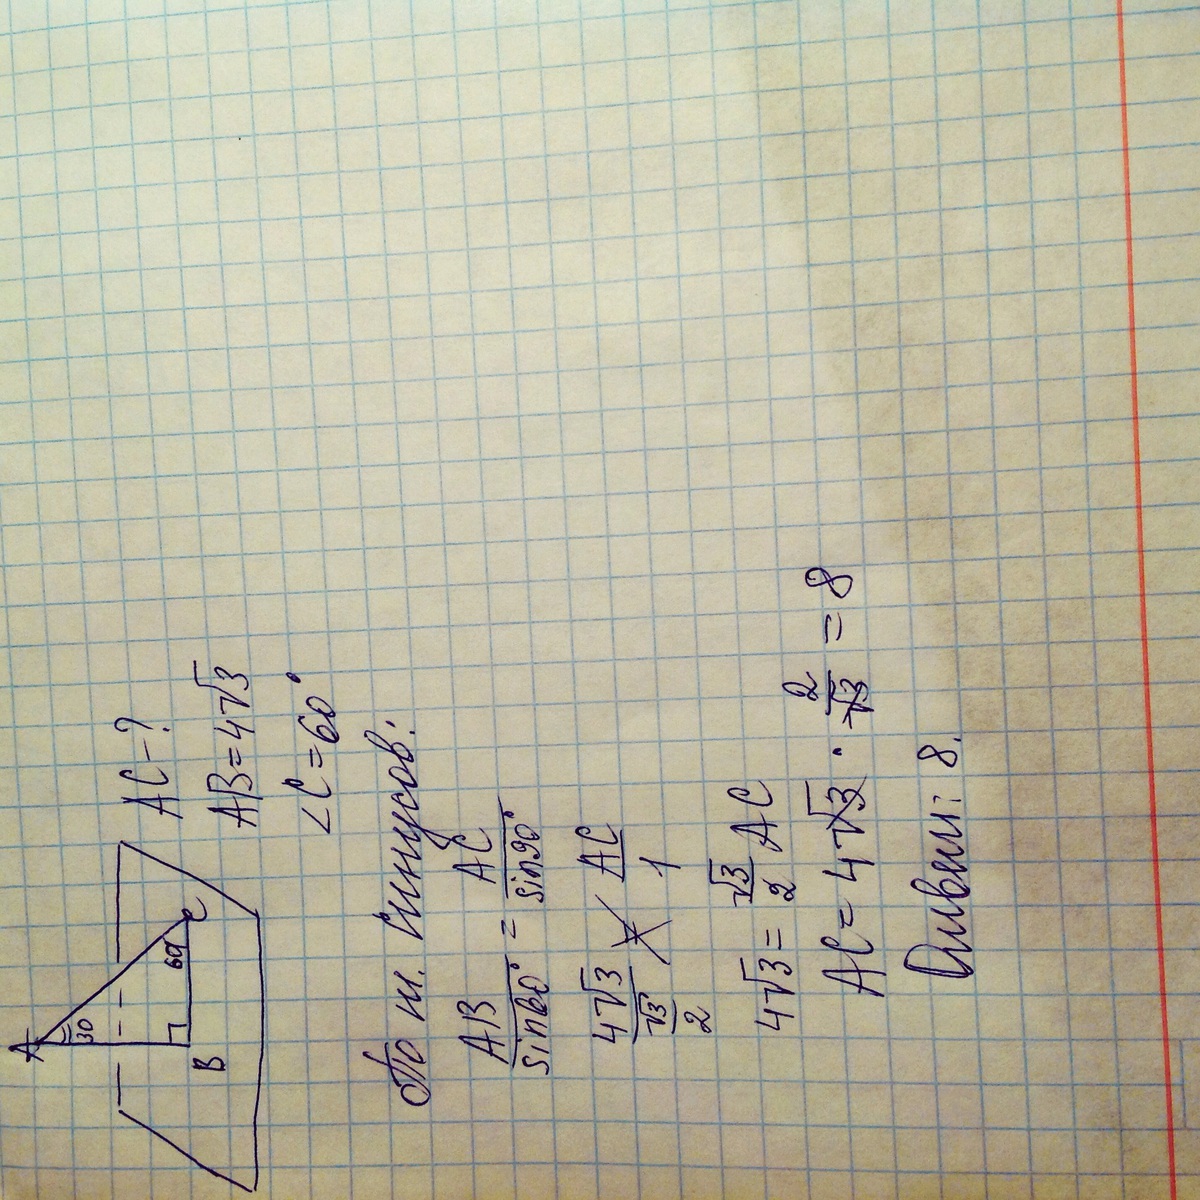 A
30
60
B
C
AC - ?
AB = 4√3
∠C = 60°
По т. Синусов:
AB/sin60° = AC/sin90°
4√3/(√3/2) = AC/1
4√3 = √3/2 AC
AC = 4√3 · 2/√3 = 8
Ответ: 8.